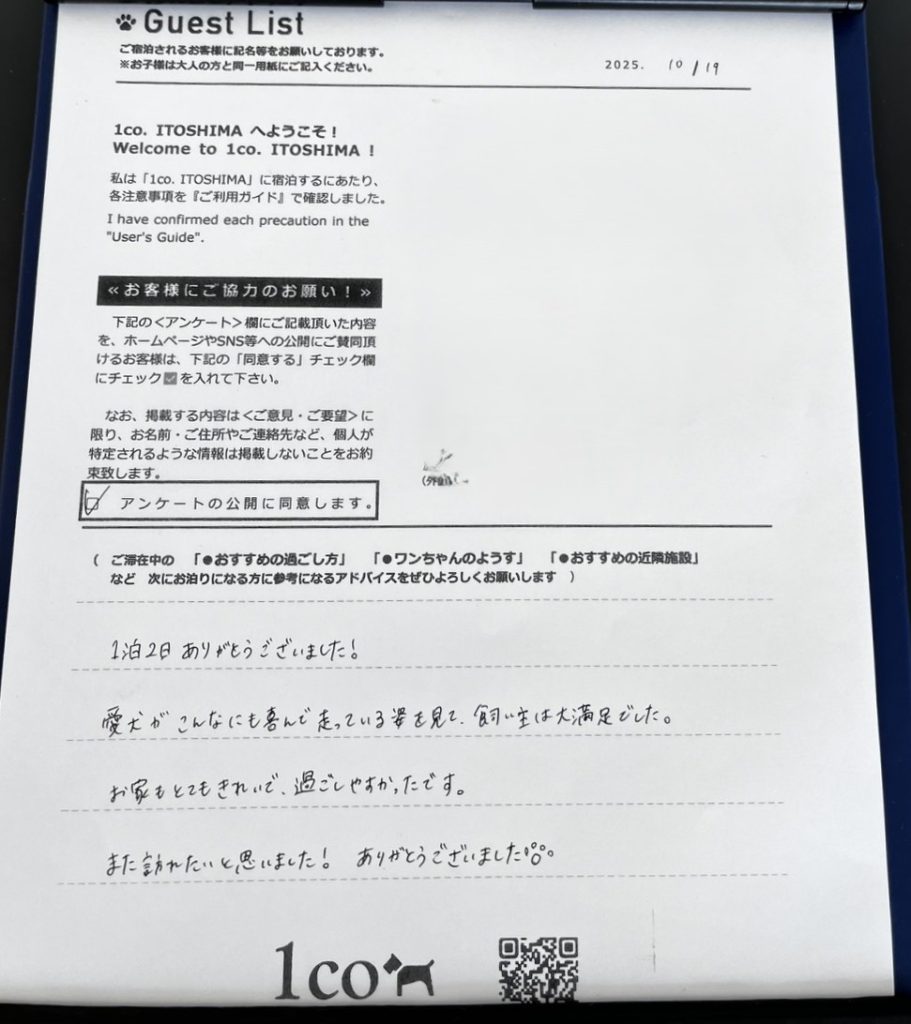 Guest List
ご宿泊されるお客様に記名等をお願いしております。
※お子様は大人の方と同一用紙にご記入ください。
2025. 10/19
1co. ITOSHIMA へようこそ！
Welcome to 1co. ITOSHIMA !
私は「1co. ITOSHIMA」に宿泊するにあたり、
各注意事項を『ご利用ガイド』で確認しました。
I have confirmed each precaution in the
"User's Guide".
«お客様にご協力のお願い！»
下記の＜アンケート＞欄にご記載頂いた内容
を、ホームページやSNS等への公開にご賛同頂
けるお客様は、下記の「同意する」チェック欄
にチェック☑を入れて下さい。
なお、掲載する内容は＜ご意見・ご要望＞に
限り、お名前・ご住所やご連絡先など、個人が
特定されるような情報は掲載しないことをお約
束致します。
アンケートの公開に同意します。
（ ご滞在中の 「●おすすめの過ごし方」 「●ワンちゃんのようす」 「●おすすめの近隣施設」
など 次にお泊りになる方に参考になるアドバイスをぜひよろしくお願いします ）
1泊2日 ありがとうございました！
愛犬が こんなにも喜んで 走っている姿を見て、飼い主は大満足でした。
お家もとてもきれいで、過ごしやすかったです。
また訪れたいと思いました！ ありがとうございました
1co